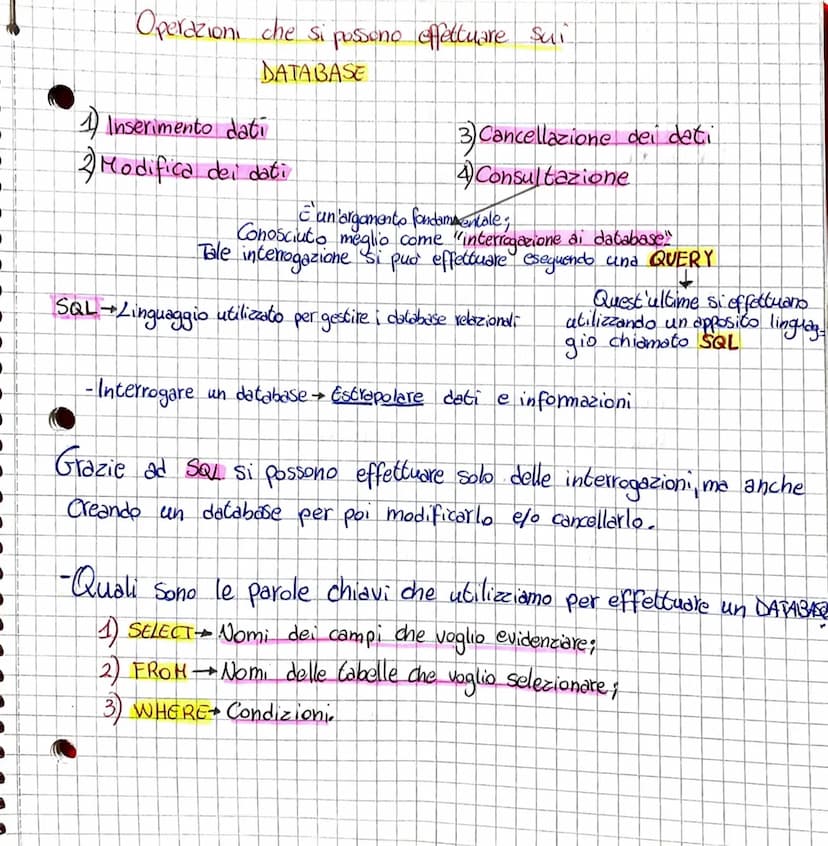 Operazioni che si possono effettuare sui
DATABASE
1) Inserimento dati
2) Modifica dei dati
3) Cancellazione dei dati
4) Consultazione
È un'argomento fondamentale;
Conosciuto meglio come "interrogazione ai database."
Tale interrogazione si può effettuare eseguendo una QUERY
Quest'ultime si effettuano
utilizzando un apposito linguag-
gio chiamato SQL
SQL → Linguaggio utilizzato per gestire i database relazionali
- Interrogare un database → Estrapolare dati e informazioni
Grazie ad SQL si possono effettuare solo delle interrogazioni, ma anche
Creando un database per poi modificarlo e/o cancellarlo.
- Quali sono le parole chiavi che utilizziamo per effettuare un DATABASE?
1) SELECT → Nomi dei campi che voglio evidenziare;
2) FROM → Nomi delle tabelle che voglio selezionare;
3) WHERE → Condizioni.